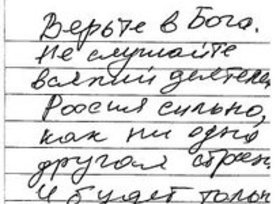 Верьте в Бога.
Не слушайте
всякий деятеле
Россия сильно,
как ни одна
другая стран
И будет тольк